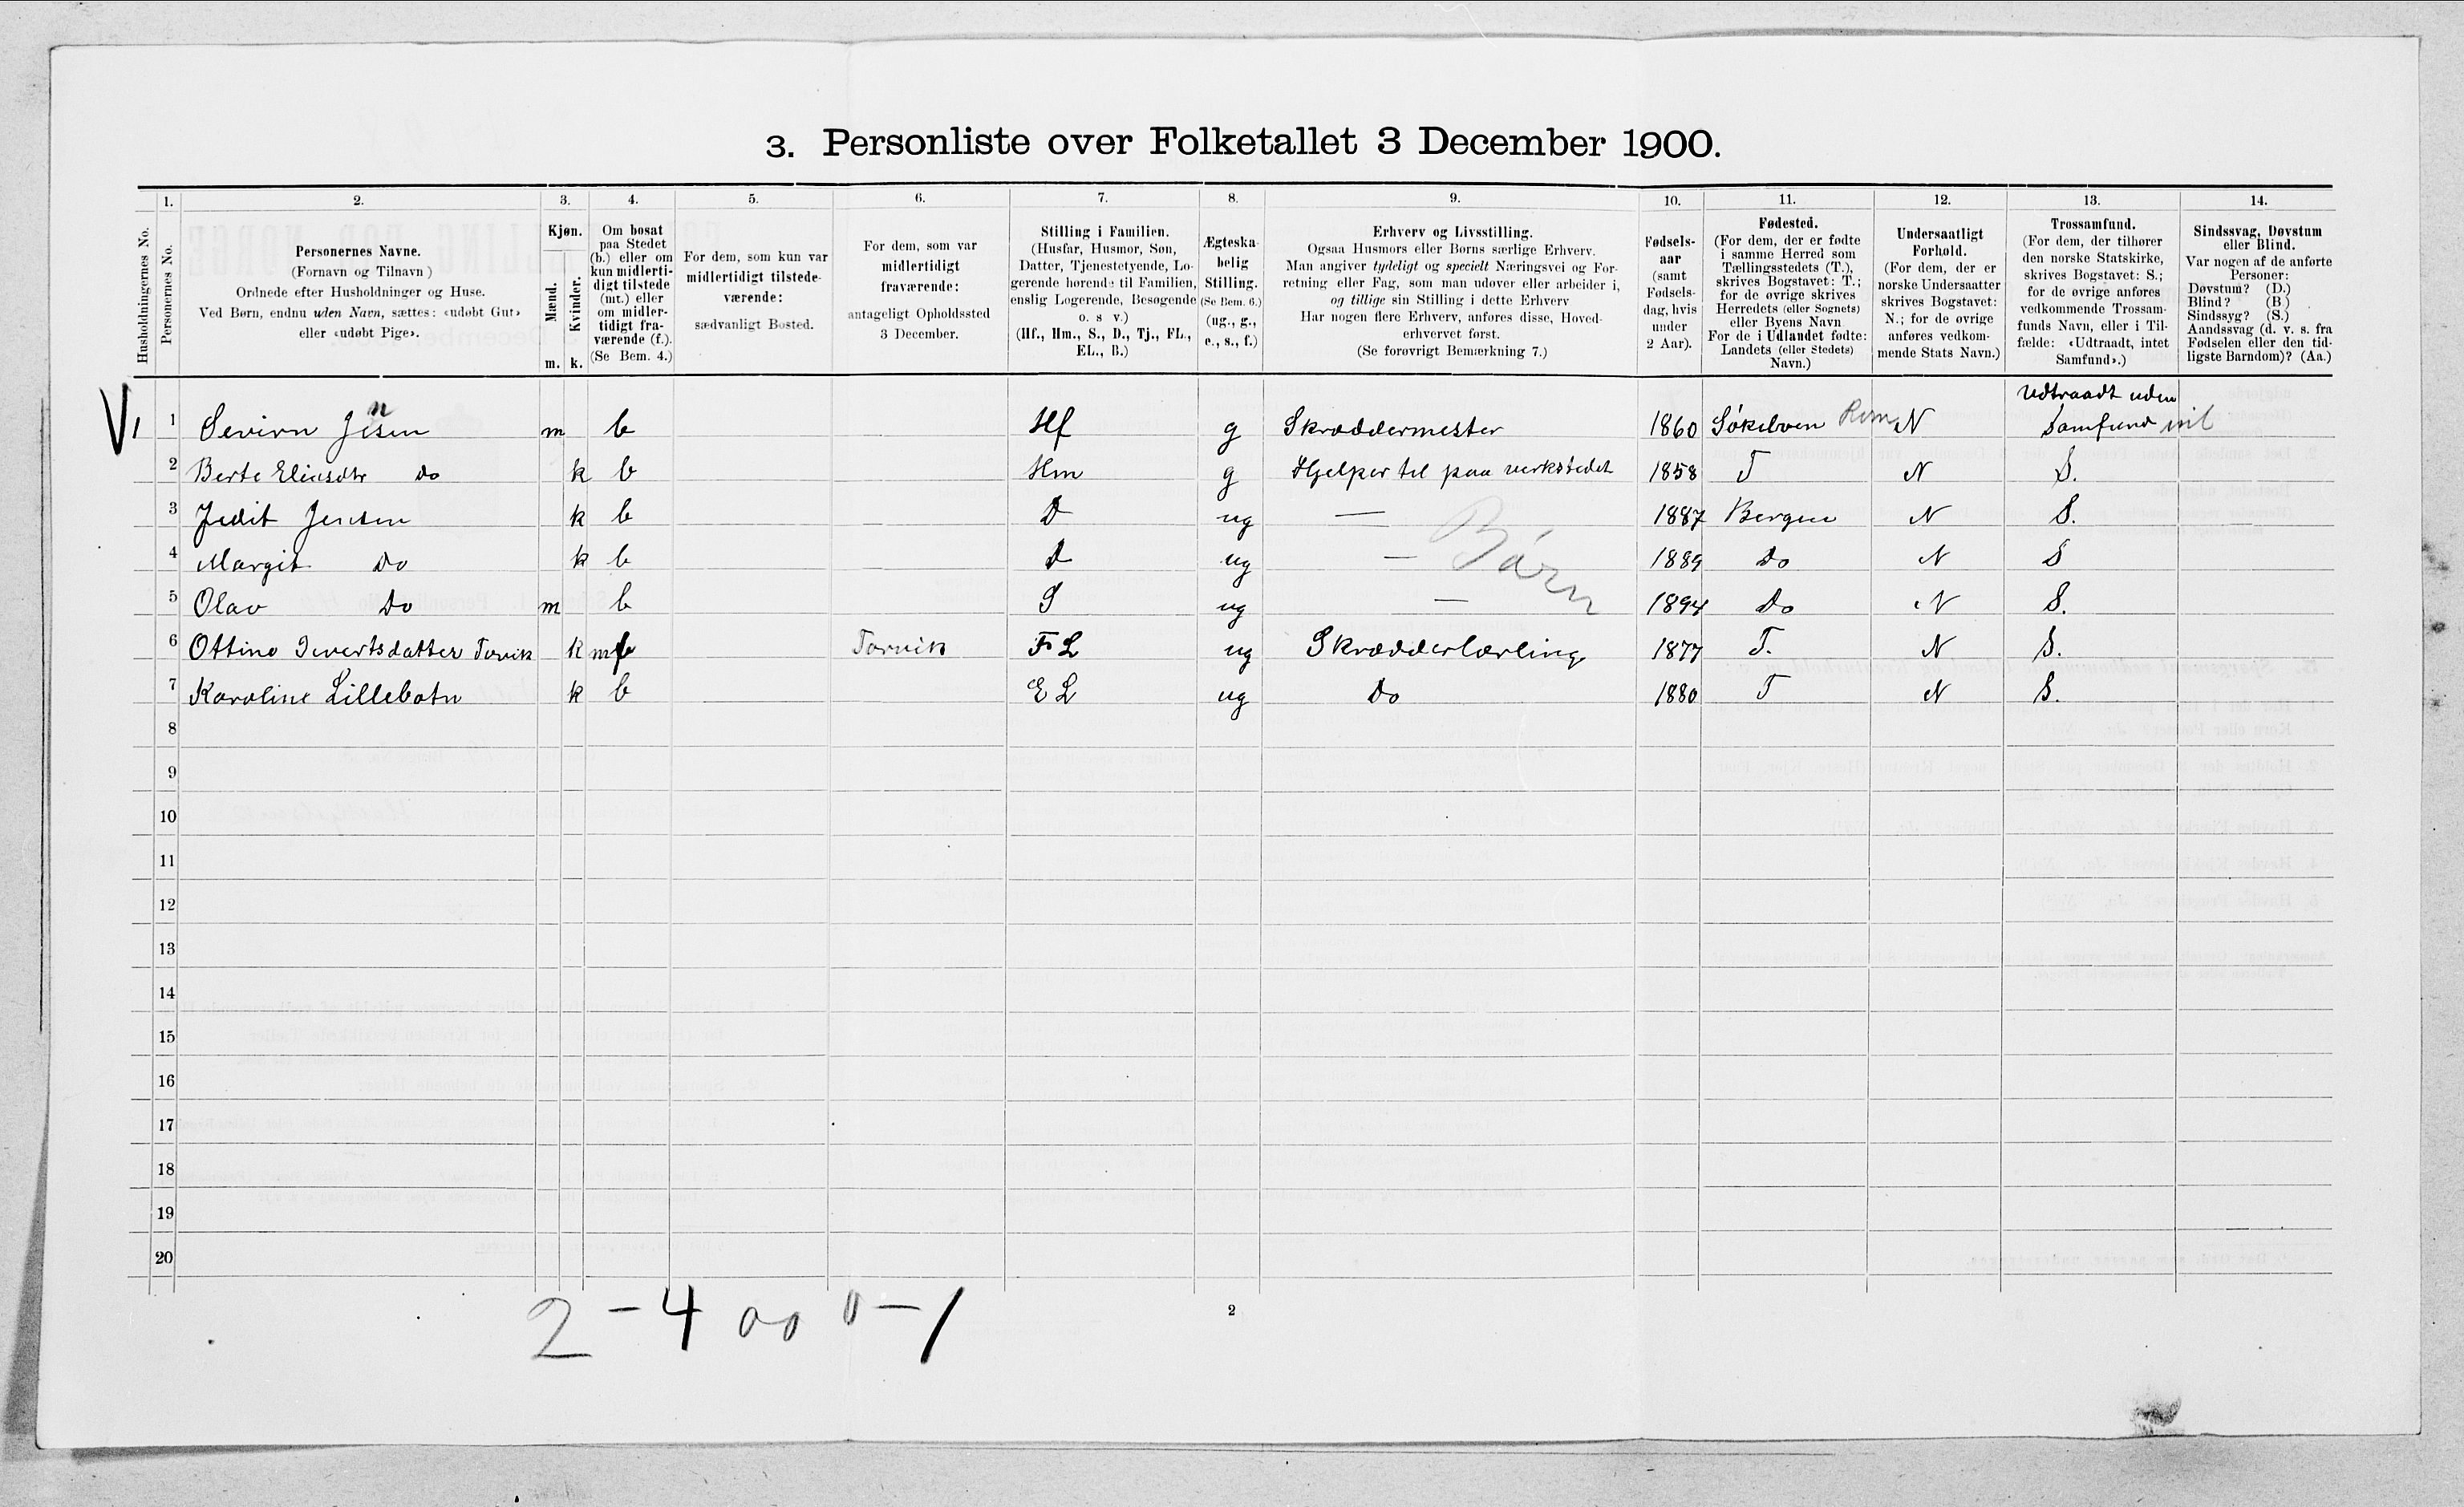 3. Personliste over Folketallet 3 December 1900.
Husholdningernes No.
1.
Personernes No.
2.
Personernes Navne.
(Fornavn og Tilnavn)
Ordnede efter Husholdninger og Huse.
Ved Børn, endnu uden Navn, sættes: «udøbt Gut»
eller «udøbt Pige».
3.
Kjøn.
Mænd.
Kvinder.
m. k.
4.
Om bosat
paa Stedet
(b.) eller om
kun midlerti-
digt tilstede
(mt.) eller
om midler-
tidigt fra-
værende (f.).
(Se Bem. 4.)
5.
For dem, som kun var
midlertidigt tilstede-
værende:
sædvanligt Bosted.
6.
For dem, som var
midlertidigt
fraværende:
antageligt Opholdssted
3 December.
7.
Stilling i Familien.
(Husfar, Husmor, Søn,
Datter, Tjenestetyende, Lo-
gerende hørende til Familien,
enslig Logerende, Besøgende
o. s v.)
(Hf., Hm., S., D., Tj., FL.,
EL., B.)
8.
Ægteska-
belig
Stilling.
(Se Bem. 6.)
(ug., g.,
e., s., f.)
9.
Erhverv og Livsstilling.
Ogsaa Husmors eller Børns særlige Erhverv.
Man angiver tydeligt og specielt Næringsvei og For-
retning eller Fag, som man udøver eller arbeider i,
og tillige sin Stilling i dette Erhverv
Har nogen flere Erhverv, anføres disse, Hoved-
erhvervet først.
(Se forøvrigt Bemærkning 7.)
10.
Fødsels-
aar
(samt
Fødsels-
dag, hvis
under
2 Aar).
11.
Fødested.
(For dem, der er fødte
i samme Herred som
Tællingsstedets (T.),
skrives Bogstavet: T.;
for de øvrige skrives
Herredets (eller Sognets)
eller Byens Navn
For de i Udlandet fødte:
Landets (eller Stedets)
Navn.)
12.
Undersaatligt
Forhold.
(For dem, der er
norske Undersaatter
skrives Bogstavet:
N.; for de øvrige
anføres vedkom-
mende Stats Navn.)
13.
Trossamfund.
(For dem, der tilhører
den norske Statskirke,
skrives Bogstavet: S.;
for de øvrige anføres
vedkommende Trossam-
funds Navn, eller i Til-
fælde: «Udtraadt, intet
Samfund».)
14.
Sindssvag, Døvstum
eller Blind.
Var nogen af de anførte
Personer:
Døvstum? (D.)
Blind? (B)
Sindssyg? (S.)
Aandssvag (d. v. s. fra
Fødselen eller den tid-
ligste Barndom)? (Aa.)
Udtraadt uden
1 1 Sevirn Jensen m b Hf g Skræddermester 1860 Søkelven Rom N Samfund nil
2 Berte Eliasdtr Do k b Hm g Hjelper til paa verkstedet 1858 T N S.
3 Judit Jensen k b D ug — 1887 Bergen N S.
4 Margit Do k b D ug — 1889 Do N S
Børn
5 Olav Do m b S ug — 1894 Do N S.
6 Ottine Ivertsdatter Torvik k mf Torvik FL ug Skrædderlærling 1877 T. N S.
7 Karoline Lillebotn k b EL ug Do 1880 T N S.
8
9
10
11
12
13
14
15
16
17
18
19
20
2 - 4 00 0 - 1
2